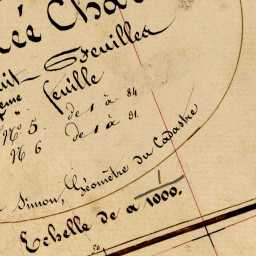 née Cha
uit Feuilles
ème feuille
N° 5. de 1 à 84
N° 6 de 1 à 91.
Simon, Géomètre du Cadastre
Echelle de a 1/1000.